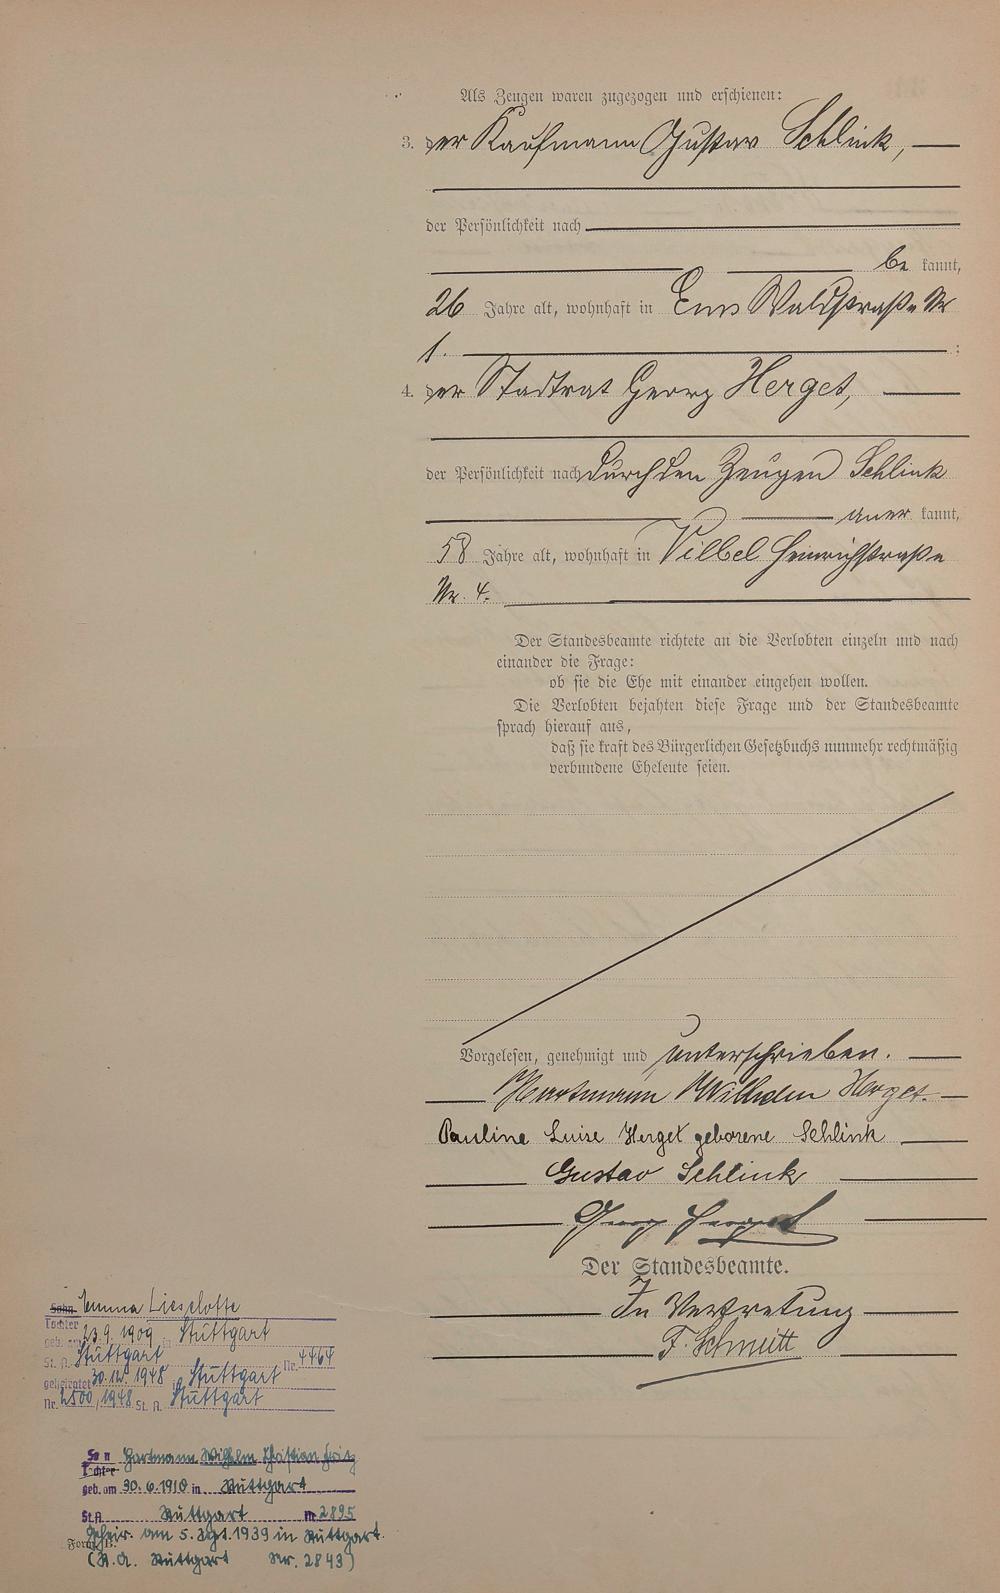 Als Zeugen waren zugezogen und erschienen:
3. der Kaufmann Gustav Schlink,
der Persönlichkeit nach
be kannt,
26 Jahre alt, wohnhaft in Ems Waldstraße Nr
1. ;
4. der Stadtrat Georg Herget,
der Persönlichkeit nach durch den Zeugen Schlink
aner kannt,
58 Jahre alt, wohnhaft in Vilbel Heinrichstraße
Nr. 4.
Der Standesbeamte richtete an die Verlobten einzeln und nach
einander die Frage:
ob sie die Ehe mit einander eingehen wollen.
Die Verlobten bejahten diese Frage und der Standesbeamte
sprach hierauf aus,
daß sie kraft des Bürgerlichen Gesetzbuchs nunmehr rechtmäßig
verbundene Eheleute seien.
Vorgelesen, genehmigt und unterschrieben.
Hartmann Wilhelm Herget.
Pauline Luise Herget geborene Schlink
Gustav Schlink
Georg Herget
Der Standesbeamte.
In Vertretung
F. Schmitt
Sohn Emma Lieselotte
Tochter
geb. am 23.9.1909 in Stuttgart
St. A. Stuttgart Nr. 4464
geheiratet 30.12.1948 in Stuttgart
Nr. 2500/1948 St. A. Stuttgart
Sohn Hartmann Wilhelm Christian Fritz
Tochter
geb. am 30.6.1910 in Stuttgart
St.A. Stuttgart Nr 2895
Geheir. am 5. Aug. 1939 in Stuttgart.
Form. B.
(St. A. Stuttgart Nr. 2843)